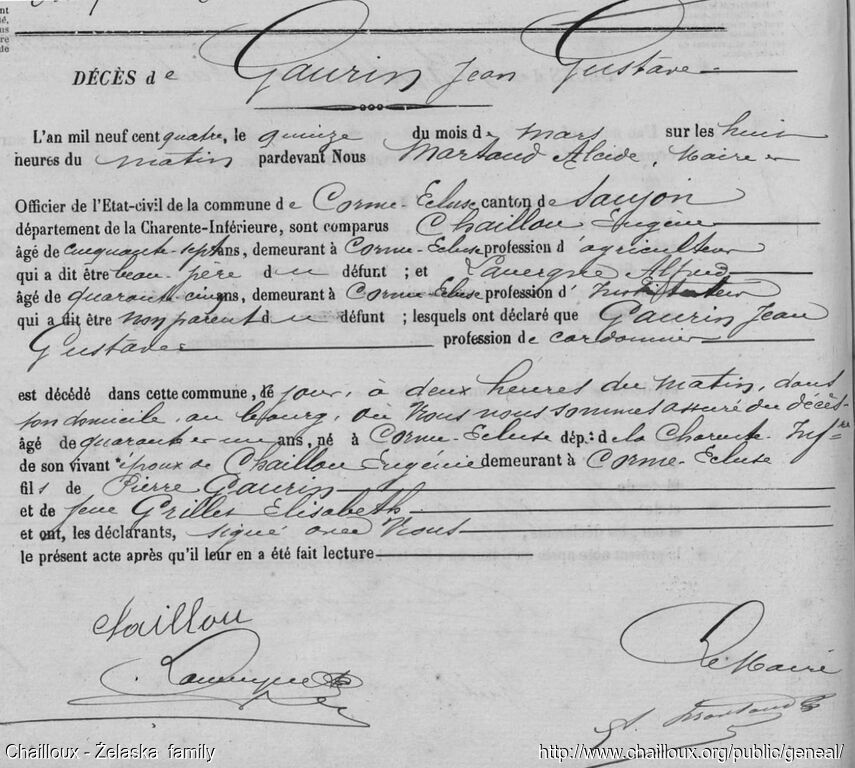 DÉCÈS de Gaurin Jean Gustave
L'an mil neuf cent quatre, le quinze du mois de mars sur les huit
heures du matin pardevant Nous Martaud Alcide, Maire et
Officier de l'Etat-civil de la commune de Corme-Ecluse canton de Saujon
département de la Charente-Inférieure, sont comparus Chaillou Eugène
âgé de cinquante-sept ans, demeurant à Corme-Ecluse profession d'agriculteur
qui a dit être beau-père du défunt ; et Lavergne Alfred
âgé de quarante cinq ans, demeurant à Corme-Ecluse profession d'Instituteur
qui a dit être non parent du défunt ; lesquels ont déclaré que Gaurin Jean
Gustave profession de cordonnier
est décédé dans cette commune, ce jour, à deux heures du matin, dans
son domicile, au bourg, où Nous nous sommes assuré du décès
âgé de quarante et un ans, né à Corme-Ecluse dép.t de la Charente-Infre
de son vivant époux de Chaillou Eugénie demeurant à Corme-Ecluse
fils de Pierre Gaurin
et de feue Grillet Elisabeth
et ont, les déclarants, signé avec Nous
le présent acte après qu'il leur en a été fait lecture
Chaillou
Lavergne
Le Maire
A. Martaud
Chailloux - Żelaska family
http://www.chailloux.org/public/geneal/